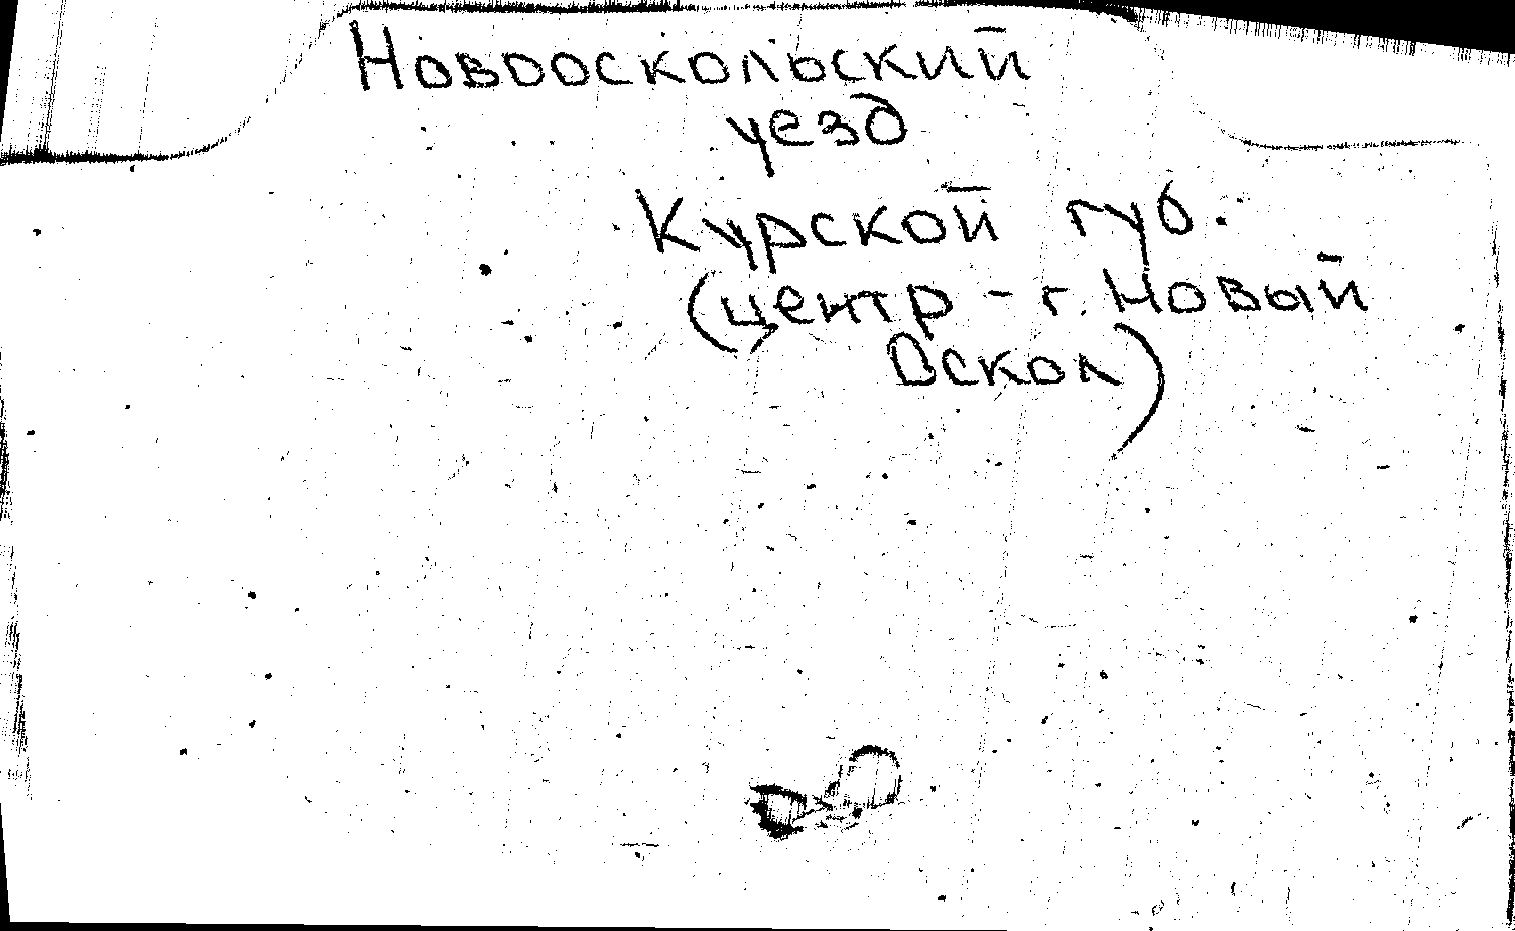 Новооскольский
уезд
Курской губ.
(центр - г. Новый
Оскол)